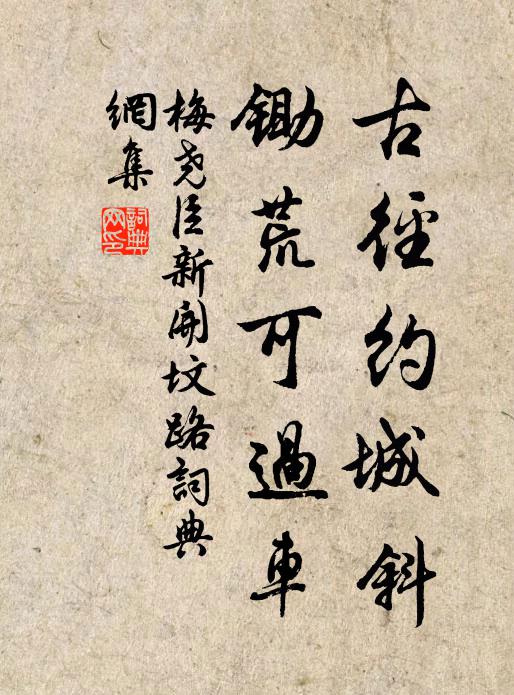 古徑約城斜
鋤荒可過車
梅堯臣新開墳路詞典
網集
詞典
网印